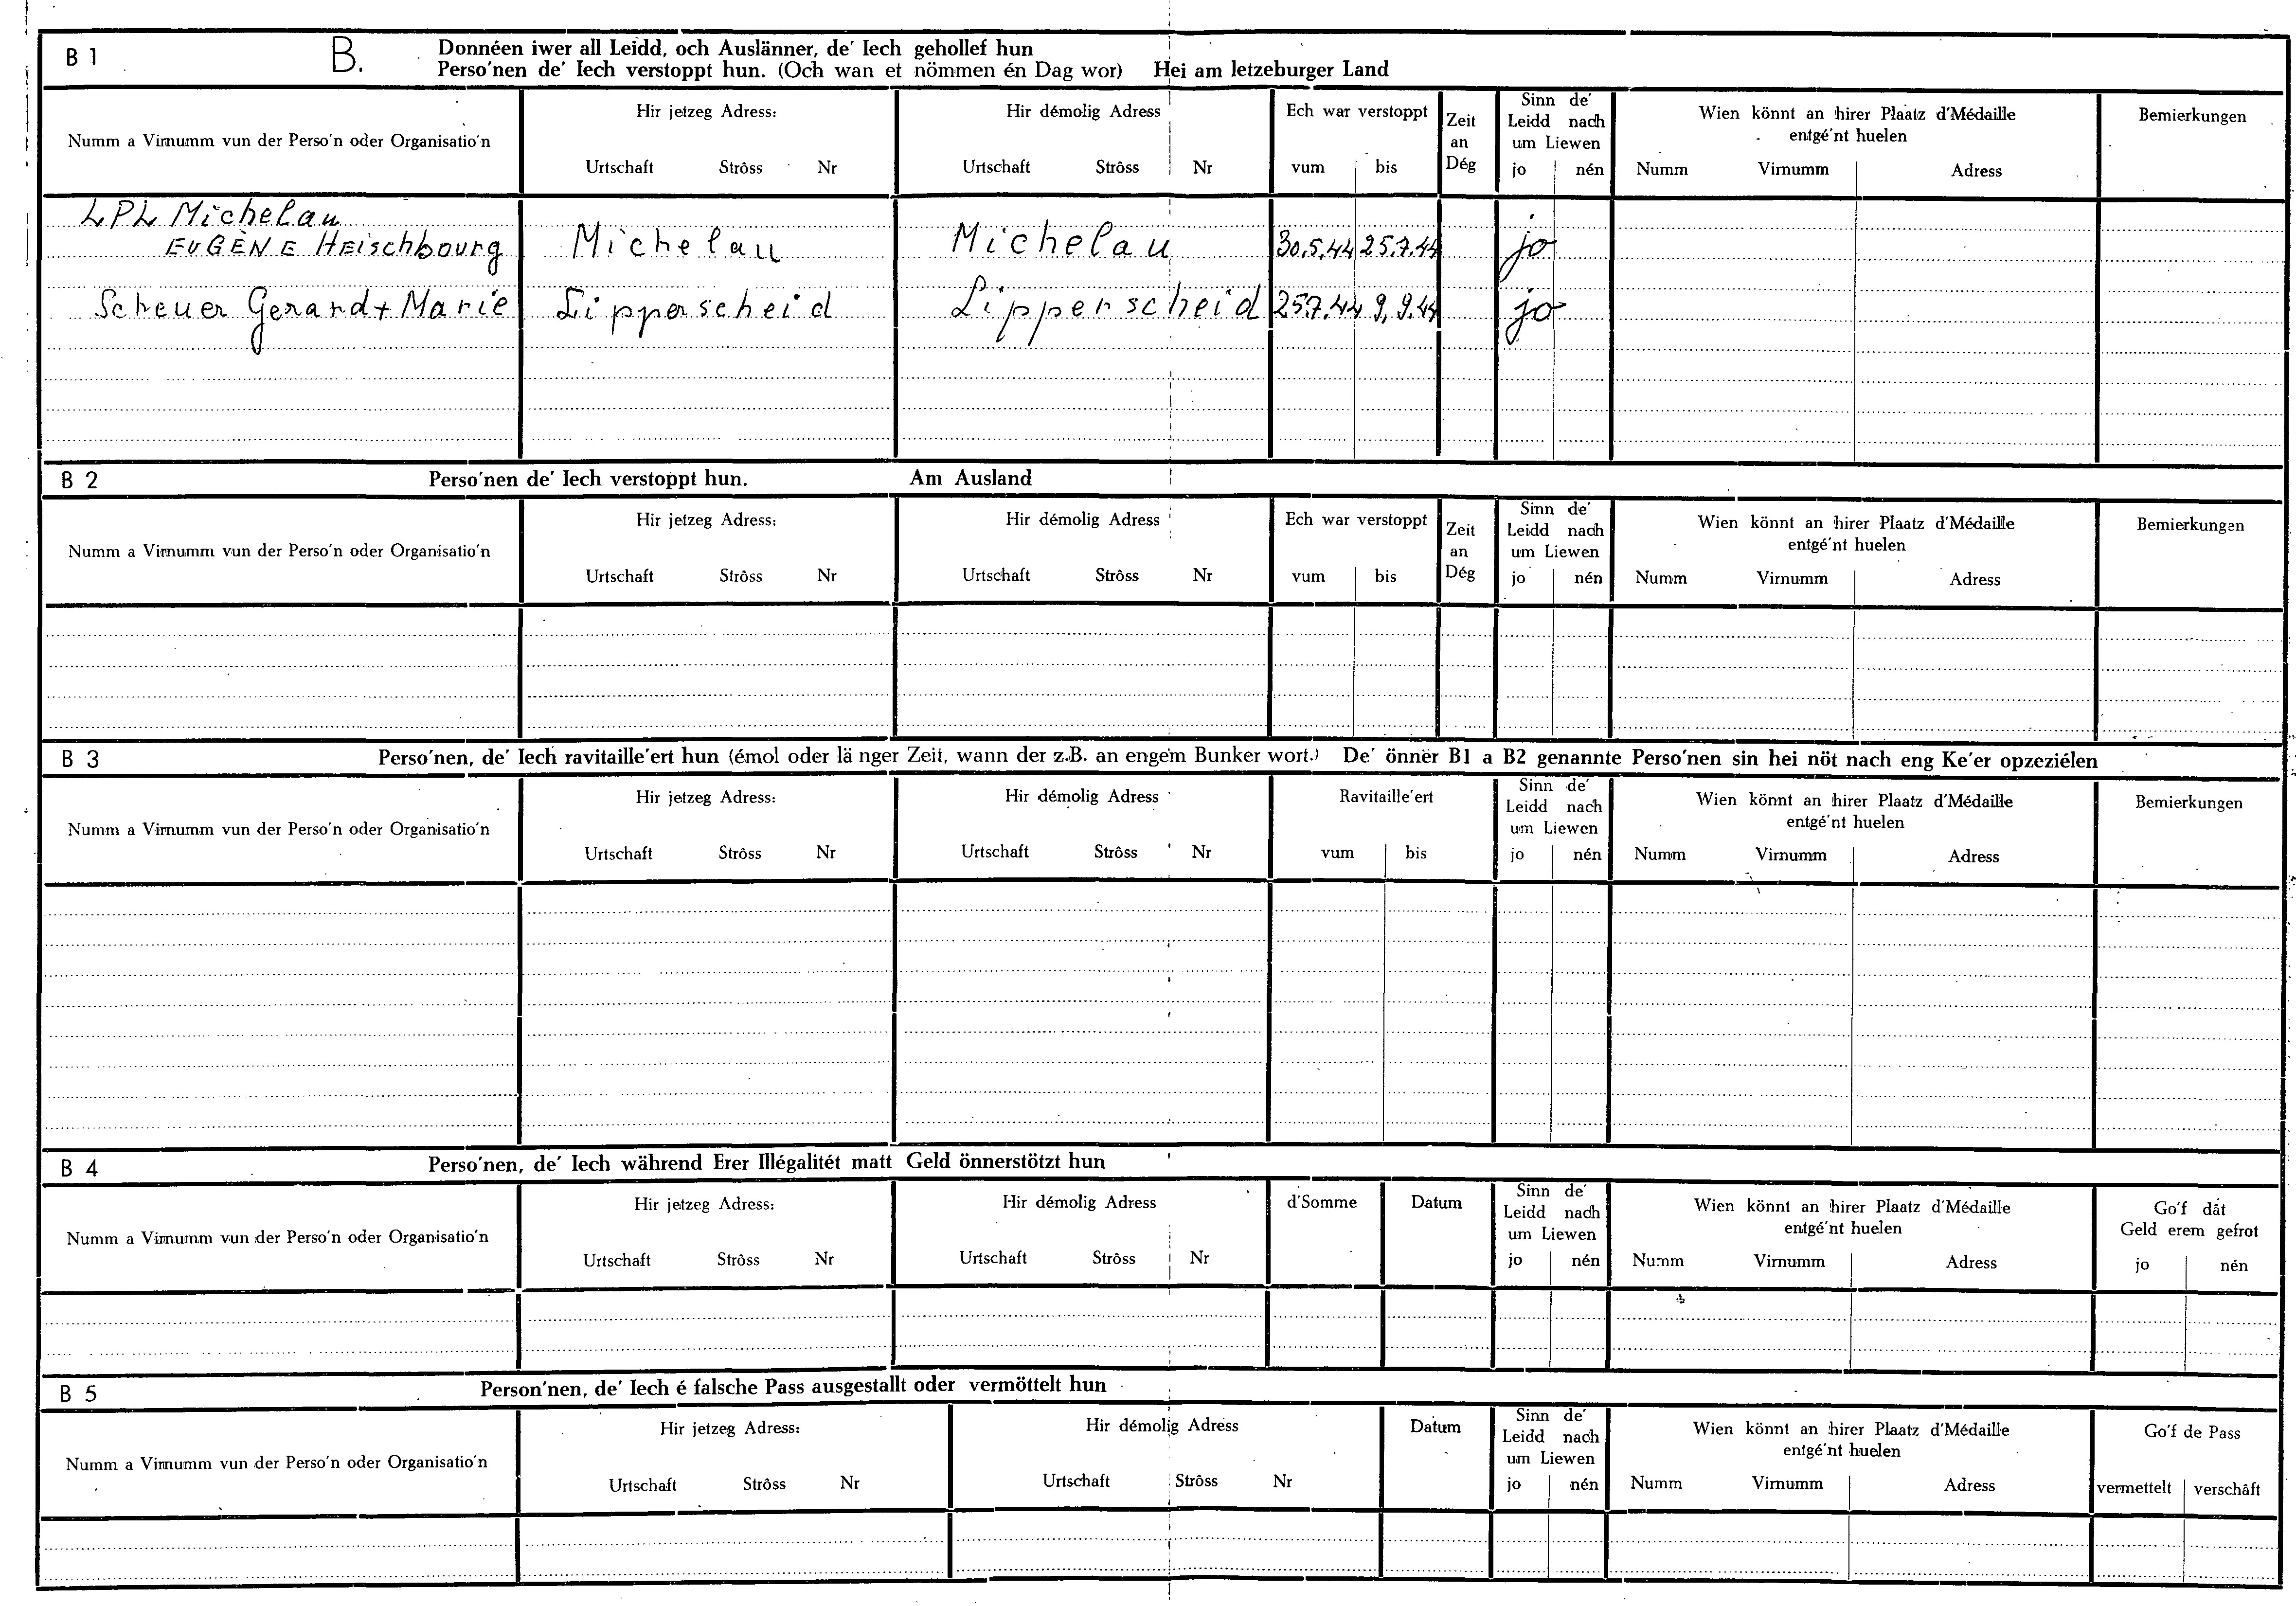 B 1 B. Donnéen iwer all Leidd, och Auslänner, de' Iech gehollef hun
Perso'nen de' Iech verstoppt hun. (Och wan et nömmen én Dag wor) Hei am letzeburger Land
Numm a Virnumm vun der Perso'n oder Organisatio'n
Hir jetzeg Adress:
Urtschaft Strôss Nr
Hir démolig Adress
Urtschaft Strôss Nr
Ech war verstoppt
vum bis
Zeit
an
Dég
Sinn de'
Leidd nach
um Liewen
jo nén
Wien könnt an hirer Plaatz d'Médaille
entgé'nt huelen
Numm Virnumm Adress
Bemierkungen
LPL Michelau
EUGÈNE Heischbourg Michelau Michelau 30.5.44 25.7.44 jo
Scheuer Gerard + Marie Lipperscheid Lipperscheid 25.7.44 9.9.44 jo
B 2 Perso'nen de' Iech verstoppt hun. Am Ausland
Numm a Virnumm vun der Perso'n oder Organisatio'n
Hir jetzeg Adress:
Urtschaft Strôss Nr
Hir démolig Adress
Urtschaft Strôss Nr
Ech war verstoppt
vum bis
Zeit
an
Dég
Sinn de'
Leidd nach
um Liewen
jo nén
Wien könnt an hirer Plaatz d'Médaille
entgé'nt huelen
Numm Virnumm Adress
Bemierkungen
B 3 Perso'nen, de' Iech ravitaille'ert hun (émol oder länger Zeit, wann der z.B. an engem Bunker wort.) De' önner B1 a B2 genannte Perso'nen sin hei nöt nach eng Ke'er opzeziélen
Numm a Virnumm vun der Perso'n oder Organisatio'n
Hir jetzeg Adress:
Urtschaft Strôss Nr
Hir démolig Adress
Urtschaft Strôss Nr
Ravitaille'ert
vum bis
Sinn de'
Leidd nach
um Liewen
jo nén
Wien könnt an hirer Plaatz d'Médaille
entgé'nt huelen
Numm Virnumm Adress
Bemierkungen
B 4 Perso'nen, de' Iech während Erer Illégalitét matt Geld önnerstötzt hun
Numm a Virnumm vun der Perso'n oder Organisatio'n
Hir jetzeg Adress:
Urtschaft Strôss Nr
Hir démolig Adress
Urtschaft Strôss Nr
d'Somme
Datum
Sinn de'
Leidd nach
um Liewen
jo nén
Wien könnt an hirer Plaatz d'Médaille
entgé'nt huelen
Numm Virnumm Adress
Go'f dât
Geld erem gefrot
jo nén
B 5 Person'nen, de' Iech é falsche Pass ausgestallt oder vermöttelt hun
Numm a Virnumm vun der Perso'n oder Organisatio'n
Hir jetzeg Adress:
Urtschaft Strôss Nr
Hir démolig Adress
Urtschaft Strôss Nr
Datum
Sinn de'
Leidd nach
um Liewen
jo nén
Wien könnt an hirer Plaatz d'Médaille
entgé'nt huelen
Numm Virnumm Adress
Go'f de Pass
vermettelt verschâft